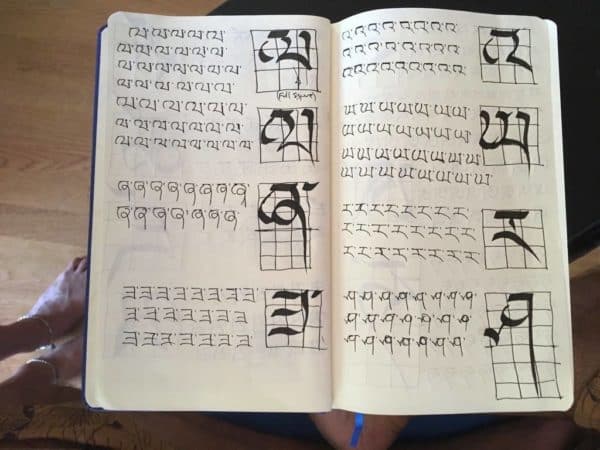 ལ་ལ་ལ་ལ་ལ་
ལ་ལ་ལ་ལ་ལ་ལ་
ལ་ལ་ལ་ལ་ལ་ལ་ལ་
ལ་ལ་ལ་ལ་ལ་
ལ
(full square)
ལ་ལ་ལ་ལ་ལ་ལ་
ལ་ལ་ལ་ལ་ལ་ལ་
ལ་ལ་ལ་ལ་ལ་ལ་ལ་ལ
ལ
ཞ་ཞ་ཞ་ཞ་ཞ་ཞ་ཞ་ཞ་
ཞ་ཞ་ཞ་ཞ་ཞ་ཞ་ཞ་
ཞ
ཟ་ཟ་ཟ་ཟ་ཟ་ཟ་ཟ་ཟ་
ཟ་ཟ་ཟ་ཟ་ཟ་ཟ་ཟ་
ཟ་ཟ་ཟ་ཟ་ཟ་ཟ་ཟ་
ཟ་
འ་འ་འ་འ་འ་འ་འ་འ་
འ་འ་འ་འ་འ་འ་འ་འ་
འ་འ་འ་འ་འ་འ་འ་འ་
འ
ཡ་ཡ་ཡ་ཡ་ཡ་ཡ་ཡ་ཡ་
ཡ་ཡ་ཡ་ཡ་ཡ་ཡ་ཡ་
ཡ་ཡ་ཡ་ཡ་ཡ་ཡ་ཡ་ཡ
ཡ་ཡ་ཡ་ཡ་ཡ་ཡ་ཡ་ཡ་ཡ་
ཡ
ར་ར་ར་ར་ར་ར་ར་ར་
ར་ར་ར་ར་ར་ར་ར་ར་
ར་ར་ར་ར་ར་ར་ར་
ར
ཤ་ཤ་ཤ་ཤ་ཤ་ཤ་ཤ་ཤ་
ཤ་ཤ་ཤ་ཤ་ཤ་ཤ་ཤ་ཤ་
ཤ་ཤ་ཤ་ཤ་ཤ་ཤ་ཤ་
ཤ